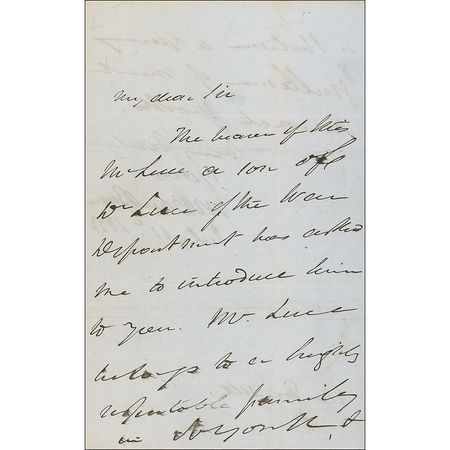 My dear Sir
The bearer of this
Mr Luce a son of
Mr Luce of the War
Department has asked
me to introduce him
to you. Mr. Luce
belongs to a highly
reputable family
in